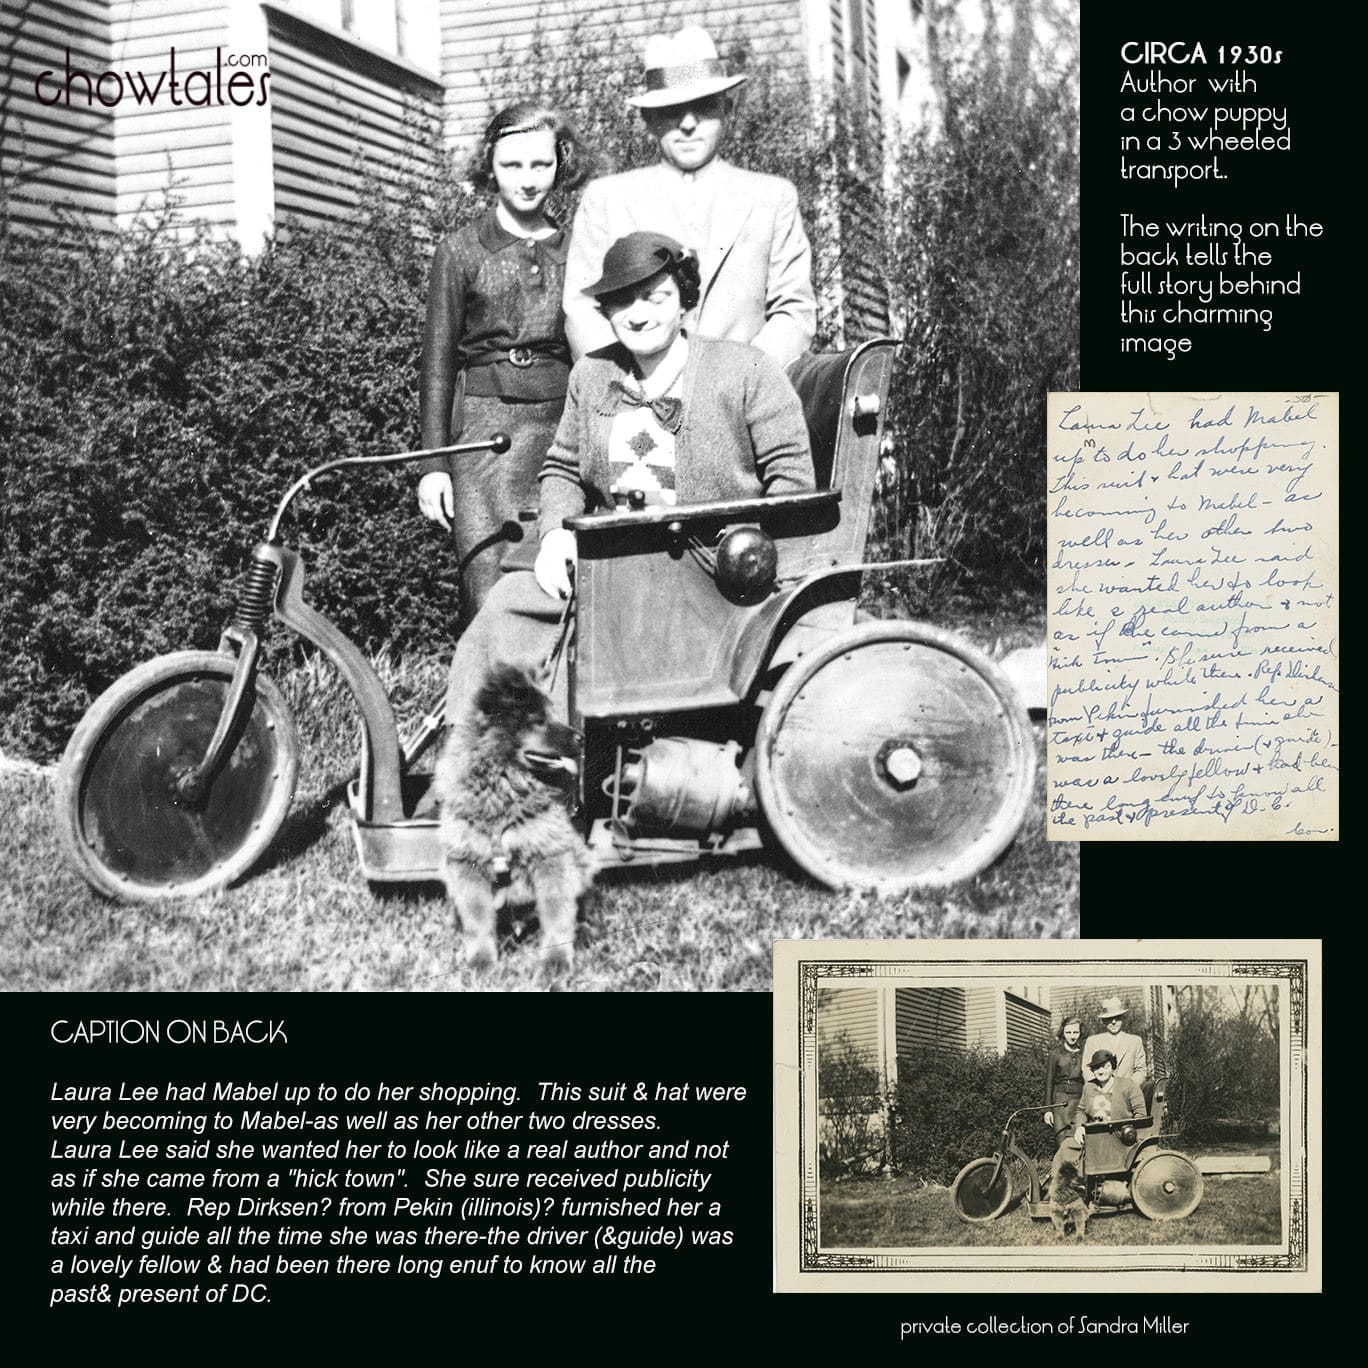 chowtales.com
CIRCA 1930s
Author with
a chow puppy
in a 3 wheeled
transport..
The writing on the
back tells the
full story behind
this charming
image
Laura Lee had Mabel
up to do her shopping.
This suit & hat were very
becoming to Mabel - as
well as her other two
dresses. Laura Lee said
she wanted her to look
like a real author & not
as if she came from a
"hick town". She sure received
publicity while there. Rep Dirksen
from Pekin furnished her a
taxi & guide all the time she
was there - the driver (& guide)
was a lovely fellow & had been
there long enuf to know all
the past & present of D.C.
Con.
CAPTION ON BACK
Laura Lee had Mabel up to do her shopping. This suit & hat were
very becoming to Mabel-as well as her other two dresses.
Laura Lee said she wanted her to look like a real author and not
as if she came from a "hick town". She sure received publicity
while there. Rep Dirksen? from Pekin (illinois)? furnished her a
taxi and guide all the time she was there-the driver (&guide) was
a lovely fellow & had been there long enuf to know all the
past& present of DC.
private collection of Sandra Miller